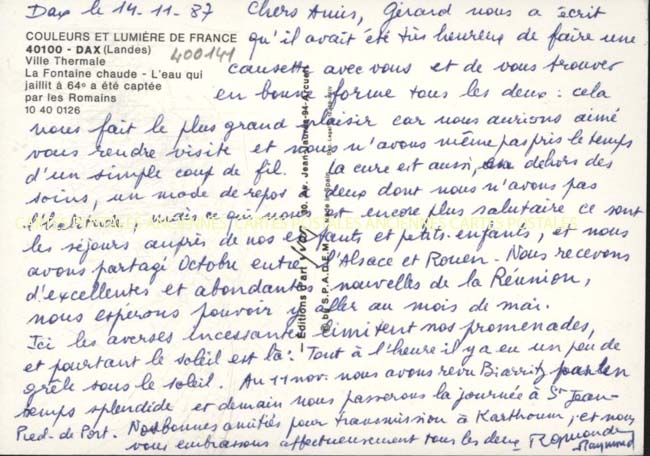 Dax le 14-11-87
Chers Amis, Gérard nous a écrit
COULEURS ET LUMIÈRE DE FRANCE
qu'il avait été très heureux de faire une
40100 - DAX (Landes)
400141
Ville Thermale
causette avec vous et de vous trouver
La Fontaine chaude - L'eau qui
jaillit à 64° a été captée
en bonne forme tous les deux : cela
par les Romains
10 40 0126
nous fait le plus grand plaisir car nous aurions aimé
vous rendre visite et nous n'avons même pas pris le temps
d'un simple coup de fil. La cure est aussi, en dehors des
soins, un mode de repos à deux dont nous n'avons pas
l'habitude, mais ce qui nous est encore plus salutaire ce sont
les séjours auprès de nos enfants et petits-enfants, et nous
avons partagé Octobre entre l'Alsace et Rouen. Nous recevons
d'excellentes et abondantes nouvelles de la Réunion,
nous espérons pouvoir y aller au mois de mai.
Ici les averses incessantes limitent nos promenades,
et pourtant le soleil est là : Tout à l'heure il y a eu un peu de
grêle sous le soleil. Au 11 nov. nous avons revu Biarritz par un
temps splendide et demain nous passerons la journée à St Jean-
Pied-de-Port. Nos bonnes amitiés pour transmission à Karthoum, et nous
vous embrassons affectueusement tous les deux
Raymond
— Éditions d'art YVON 30, Av. Jean-Jaurès-94-Arcueil
© by S.P.A.D.E.M.
CARTES POSTALES ANCIENNES